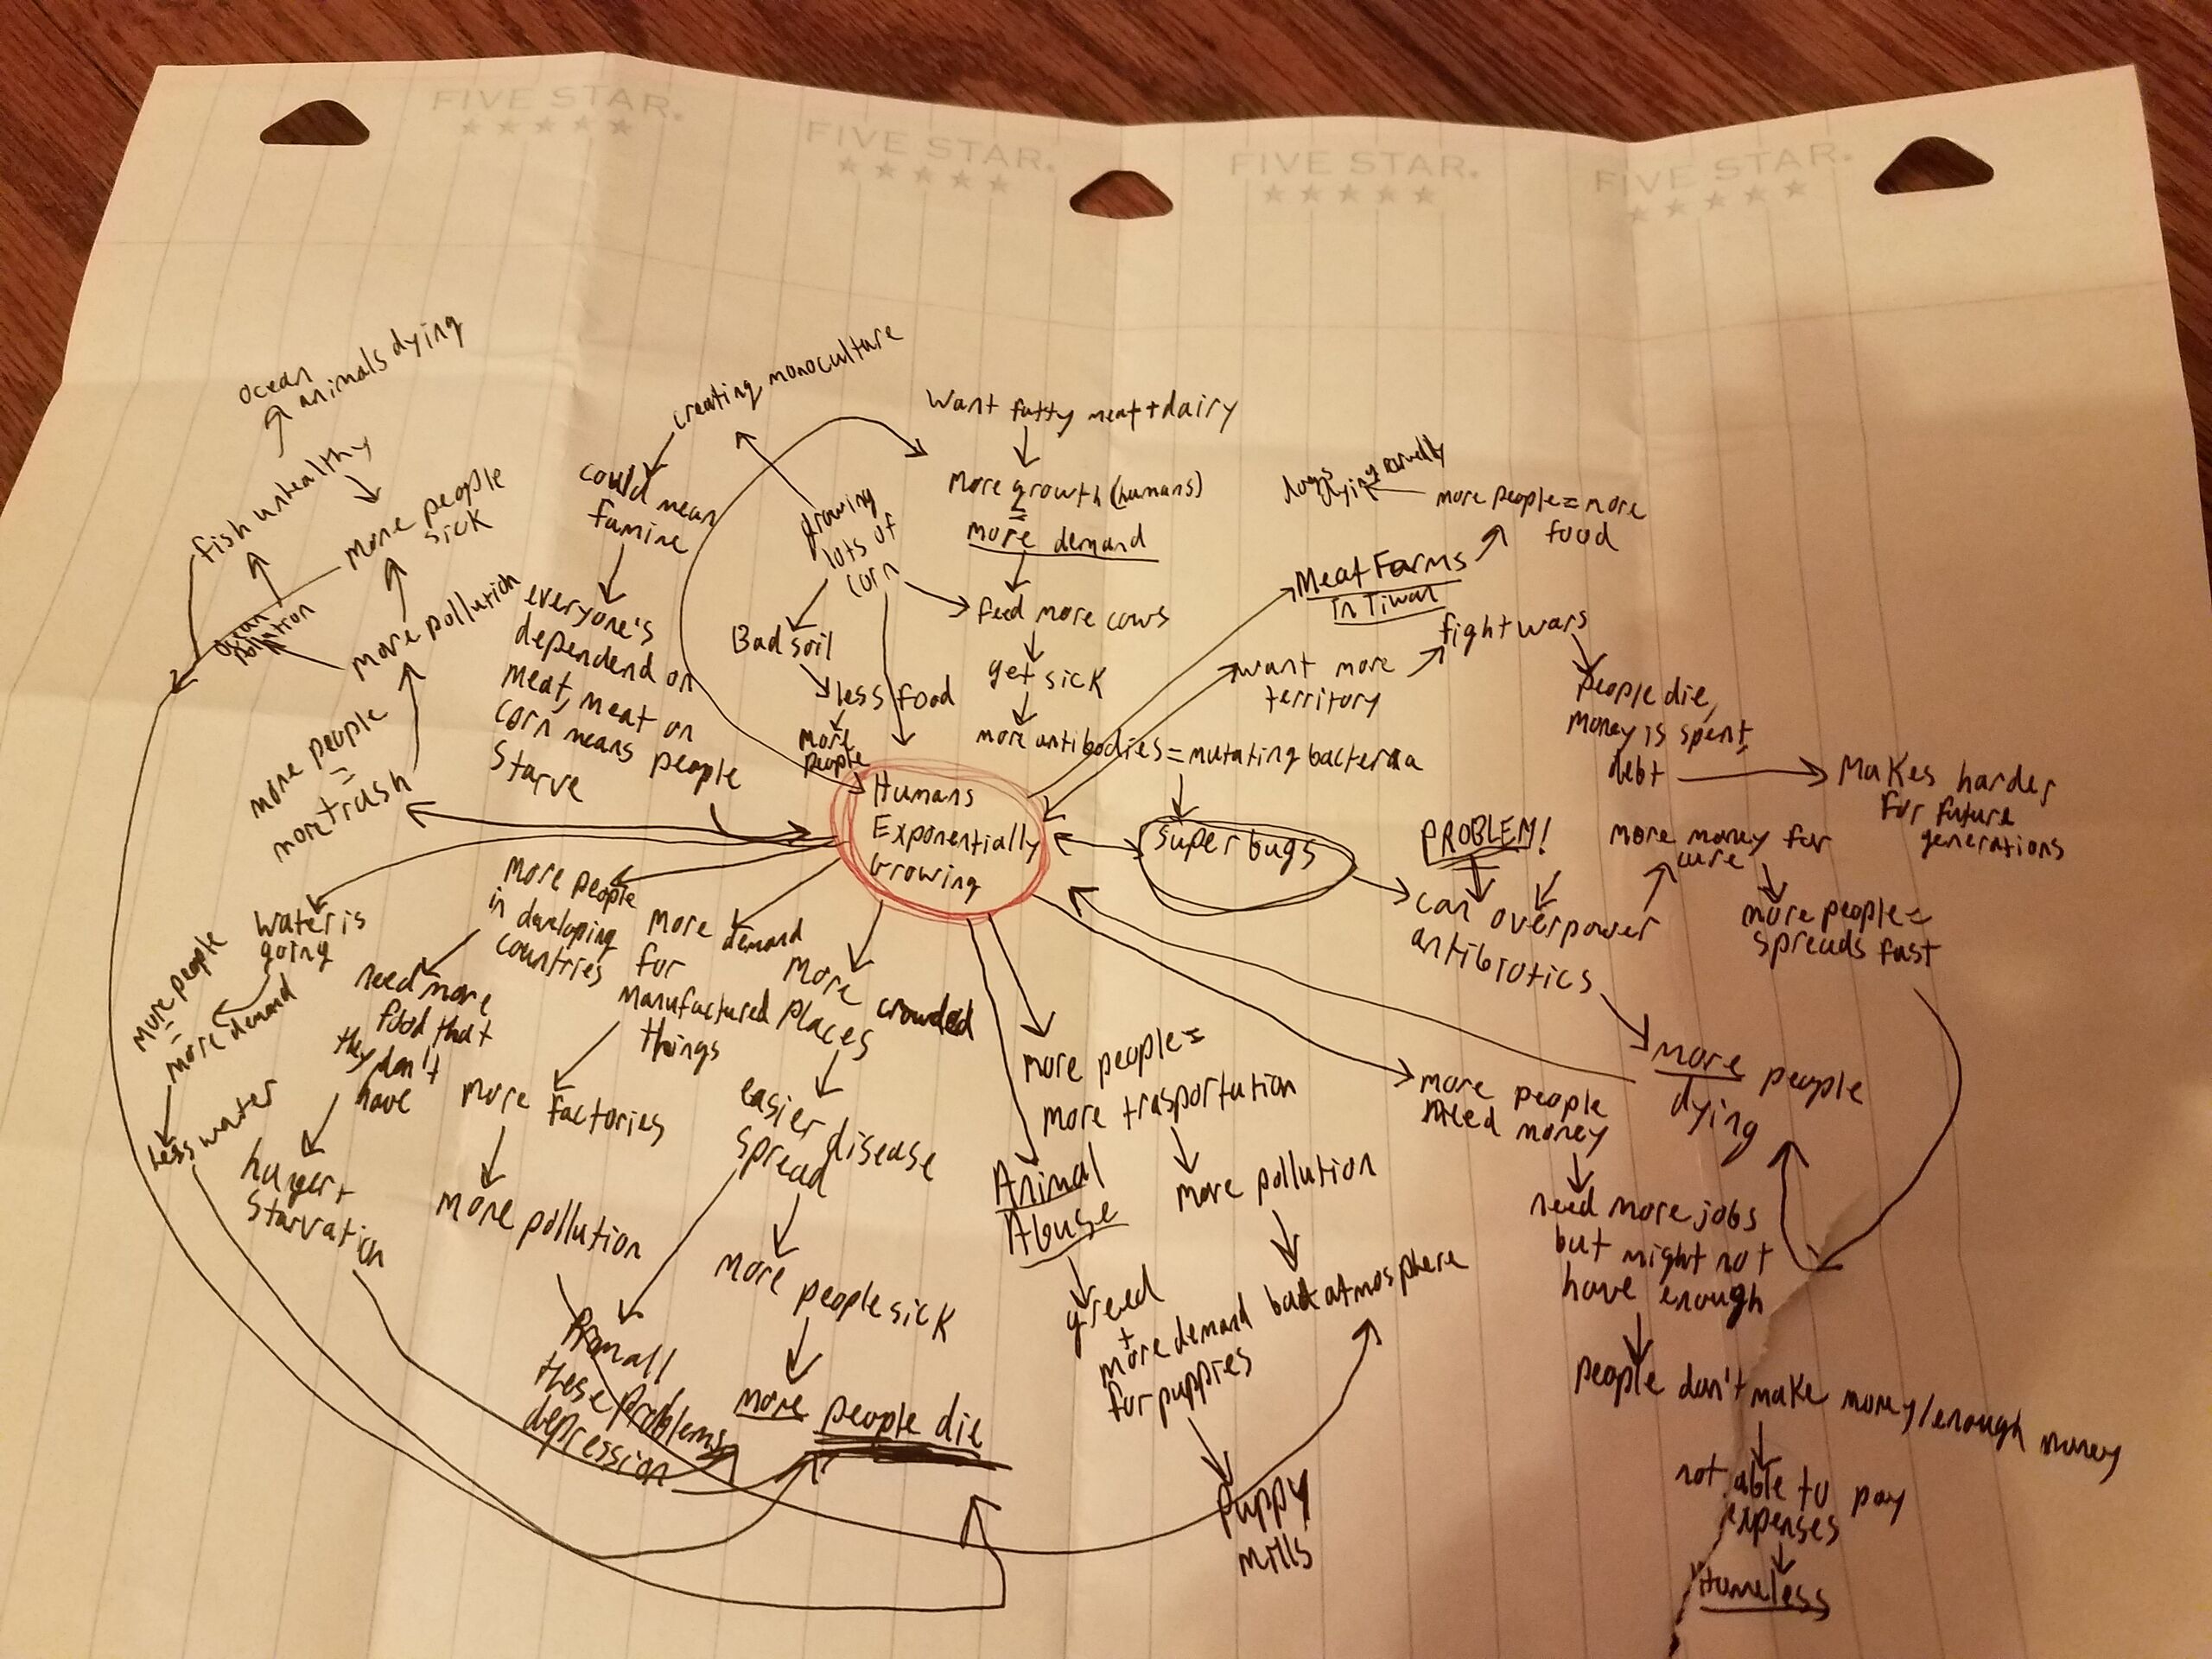 FIVE STAR.
FIVE STAR.
FIVE STAR.
FIVE STAR.
ocean
animals dying
fish unhealthy
more people
sick
ocean
pollution
more pollution
more people
=
more trash
creating monoculture
could mean
famine
everyone's
dependend on
meat, meat on
corn means people
starve
growing
lots of
corn
Bad soil
less food
more
people
want fatty meat + dairy
more growth (humans)
=
more demand
feed more cows
get sick
more antibodies = mutating bacteria
super bugs
Humans
Exponentially
Growing
dying
more people = more
food
Meat Farms
in Tiwan
want more
territory
fight wars
people die,
money is spent,
debt
Makes harder
for future
generations
PROBLEM!
can overpower
antibiotics
more money for
cure
more people =
spreads fast
more people
dying
more people
need money
need more jobs
but might not
have enough
people don't make money/enough money
not able to pay
expenses
Homeless
water is
going
more people
=
more demand
less water
more people
in developing
countries
need more
food that
they don't
have
hunger +
starvation
more demand
for
manufactured
things
more factories
more pollution
more crowded
places
easier disease
spread
more people sick
more people die
From all
these problems
depression
more people =
more trasportution
more pollution
bad atmosphere
Animal
Abuse
greed
+
more demand
for puppies
puppy
mills